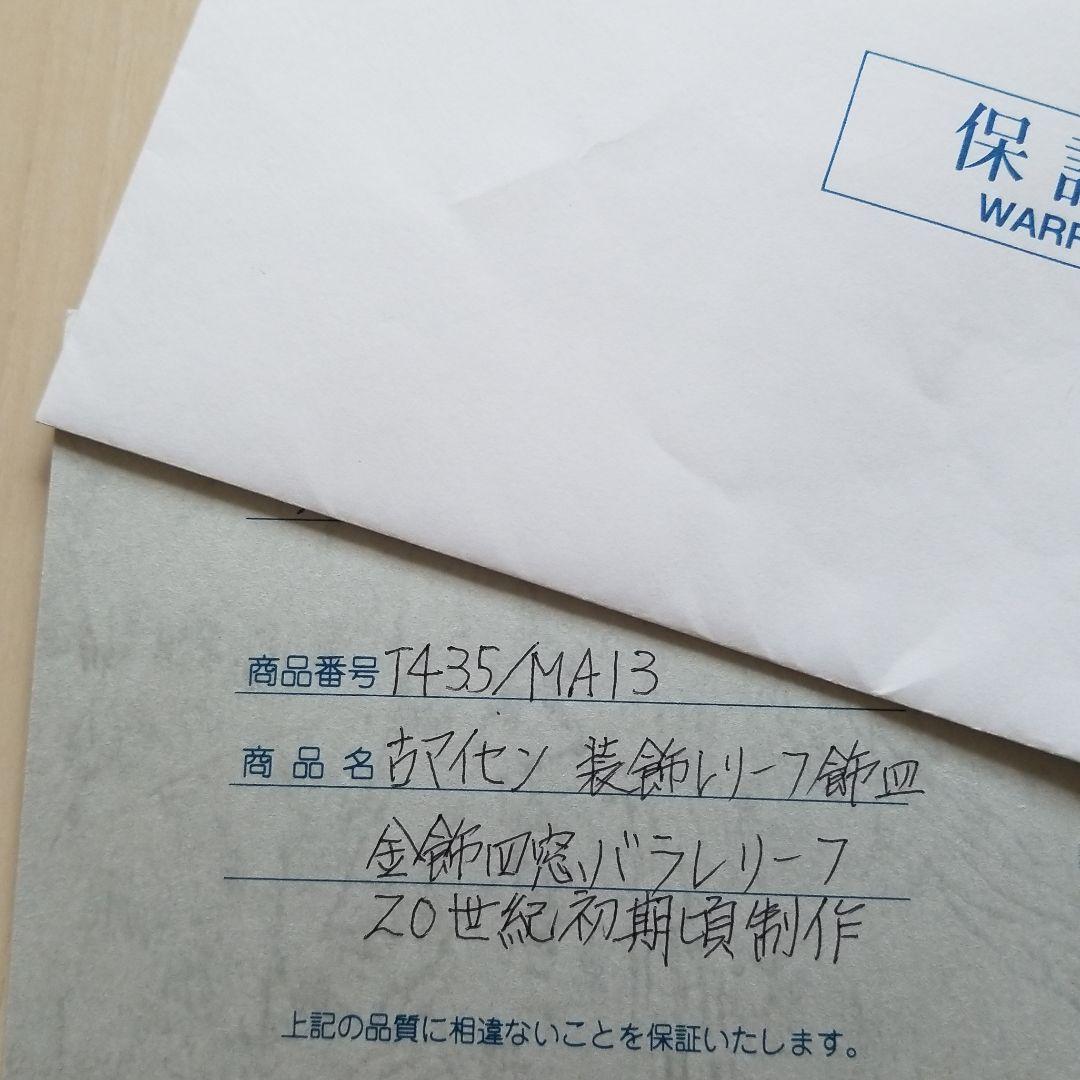 保
WARR
商品番号 T435/MA13
商品名 古マイセン 装飾レリーフ飾皿
金飾四窓バラレリーフ
20世紀初期頃制作
上記の品質に相違ないことを保証いたします。